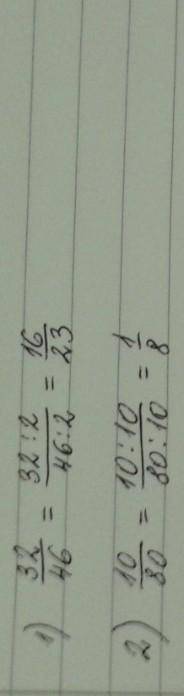 1) 32/46 = 32:2/46:2 = 16/23
2) 10/80 = 10:10/80:10 = 1/8